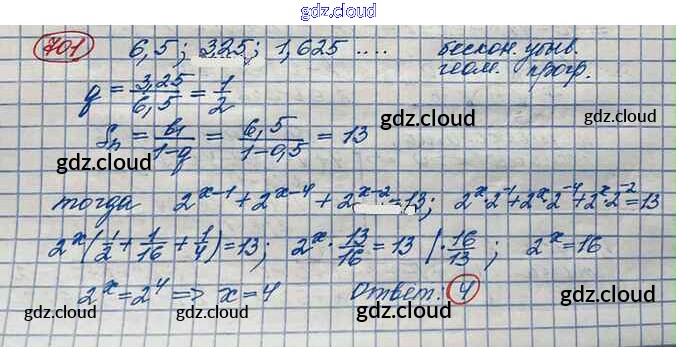 gdz.cloud
701 6,5; 3,25; 1,625 .... бескон. убыв.
геом. прогр.
q = 3,25/6,5 = 1/2
gdz.cloud
gdz.cloud
Sn = b1/1-q = 6,5/1-0,5 = 13
gdz.cloud
gdz.cloud
gdz.cloud
тогда 2^x-1 + 2^x-4 + 2^x-2 = 13; 2^x·2^-1 + 2^x 2^-4 + 2^x·2^-2 = 13
2^x(1/2 + 1/16 + 1/4) = 13; 2^x · 13/16 = 13 |·16/13; 2^x = 16
gdz.cloud
gdz.cloud
2^x = 2^4 => x = 4 Ответ: 4
gdz.cloud
gdz.cloud
gdz.cloud